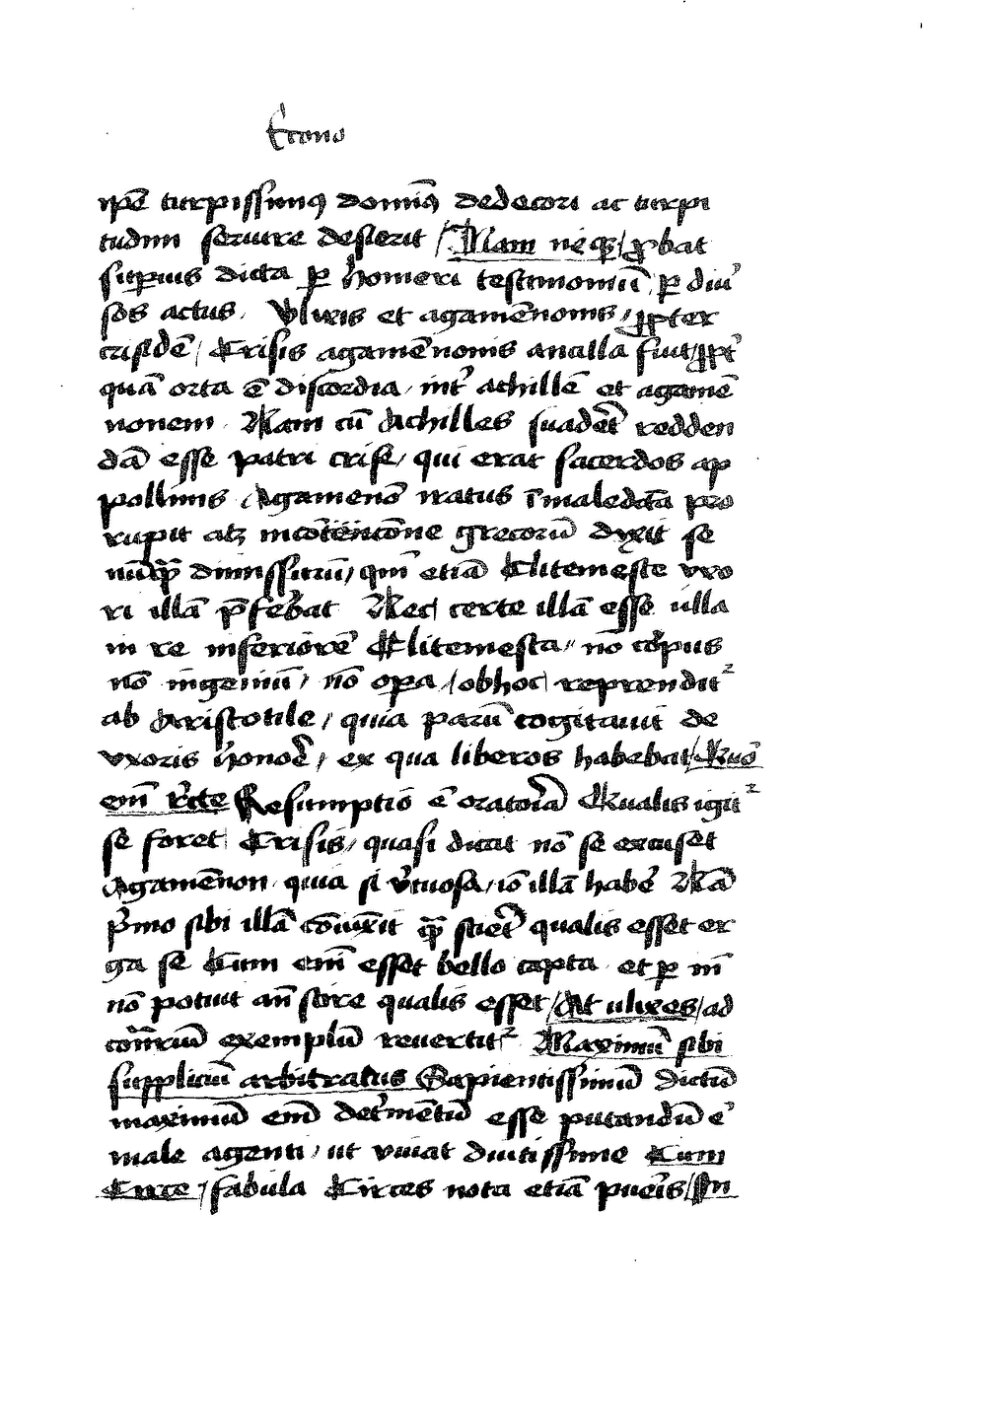 Econo
ipē turpissimꝯ domiꝯ dedecori ac turpi
tudini seruire desierit / Nam neqꝫ / ꝓbat
supius dicta ꝑ homeri testimoniū ꝑ diū
sos actus. Vlixis et agamēnonis / ꝓpter
crisidē / Crisis agamēnonis ancilla fuit / ꝓpt̄
quā orta ē discordia / int̄ achillē et agamē
nonem. Nam cū Achilles suadēt redden
dā esse patri crise / qui erat sacerdos ap
pollinis Agamenō iratus ī maledicta pro
rupit atqꝫ grecorū dixit se
nūq̄ dimissurū / qm̄ etiā Clitemeste vxo
ri illā p̄ferebat Nec certe illā esse ulla
in re inferiorē Clitemesta / nō corpus
nō ingeniū / nō opa / ob hoc reprendit᷑
ab Aristotile / quia parū cogitauit de
vxoris honōe / ex qua liberos habebat / Quō
em̄ rcte Resumptio ē oratoria Qualis igit᷑
se foret Crisis / quasi dicat nō se excuset
Agamēnon / quia si v̄tuosa / iō illā habē Nā
p̄mo sibi illā cōiuxit q̄ sciēt qualis esset er
ga se Cum em̄ esset bello capta et ꝑ m̄
nō potuit an̄ scire qualis esset / At ulixes / ad
cōtrariū exemplū reuertit᷑ Maximū sibi
suppliciū arbitratus Sapientissimū dictū
maximum em̄ det̄mentū esse putandū ē
male agenti / ut viuat diutissime Cum
Circe / fabula Circes nota etiā pueris / In